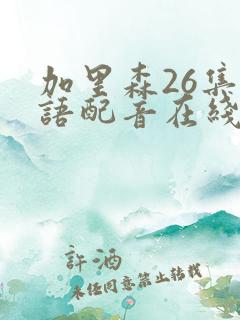 加里森26集
語配音在綫
許酒
未经同意禁止转载